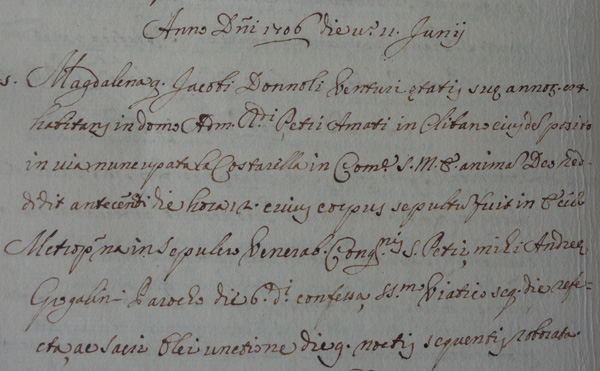 Anno Dñi 1706 die v.º 11. Junij
s. Magdalena q. Jacobi Donnoli Venturi ętatis suę annoȝ.
habitans in domo Adm. Rdi Petri Amati in Clibano eiusdẽ posito
in via nuncupata la Costarella in Com. S. M. E. animã Deo red-
didit antecẽnti die hora 12. cuius corpus sepultũ fuit in Eccl.
Metropna in sepulcro Venerab. Congnis S. Petri, mihi Andreę
Gogalini Parocho die 6. di confessa, SSmo Viatico seq. die refe-
cta, ac sacri Olei unctione die 9. noctis sequentis roborata.